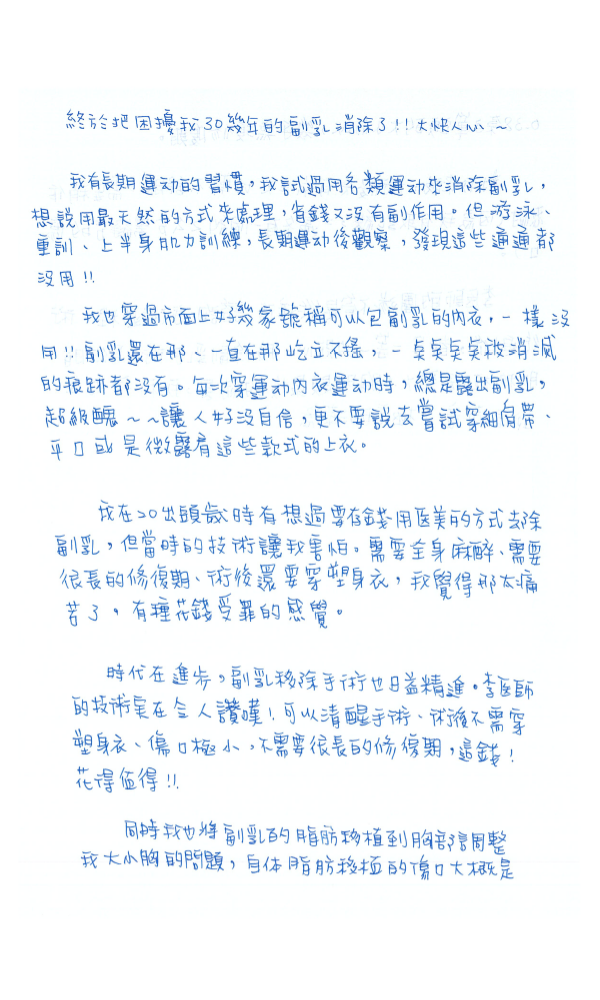 終於把困擾我30幾年的副乳消除了!!大快人心、~
我有長期運動的習慣，我試過用各類運動來消除副乳，
想說用最天然的方式來處理，省錢又沒有副作用。但游泳、
重訓、上半身肌力訓練，長期運動後觀察，發現這些通通都
沒用!!
我也穿過市面上好幾家號稱可以包副乳的內衣，一樣沒
用!!副乳還在那、一直在那屹立不搖，一點點點被消滅
的痕跡都沒有。每次穿運動內衣運動時，總是露出副乳，
超級醜~~讓人好沒自信，更不要說去嘗試穿細肩帶、
平口或是微露肩這些款式的上衣。
我在20出頭歲時有想過要存錢用医美的方式去除
副乳，但當時的技術讓我害怕。需要全身麻醉、需要
很長的修復期、術後還要穿塑身衣，我覺得那太痛
苦了。有種花錢受罪的感覺。
時代在進步，副乳移除手術也日益精進。李医師
的技術実在令人讚嘆!可以清醒手術、術後不需穿
塑身衣、傷口極小、不需要很長的修復期，這錢!
花得值得!!
同時我也將副乳的脂肪移植到胸部調整
我大小胸的問題，自体脂肪移植的傷口大概是